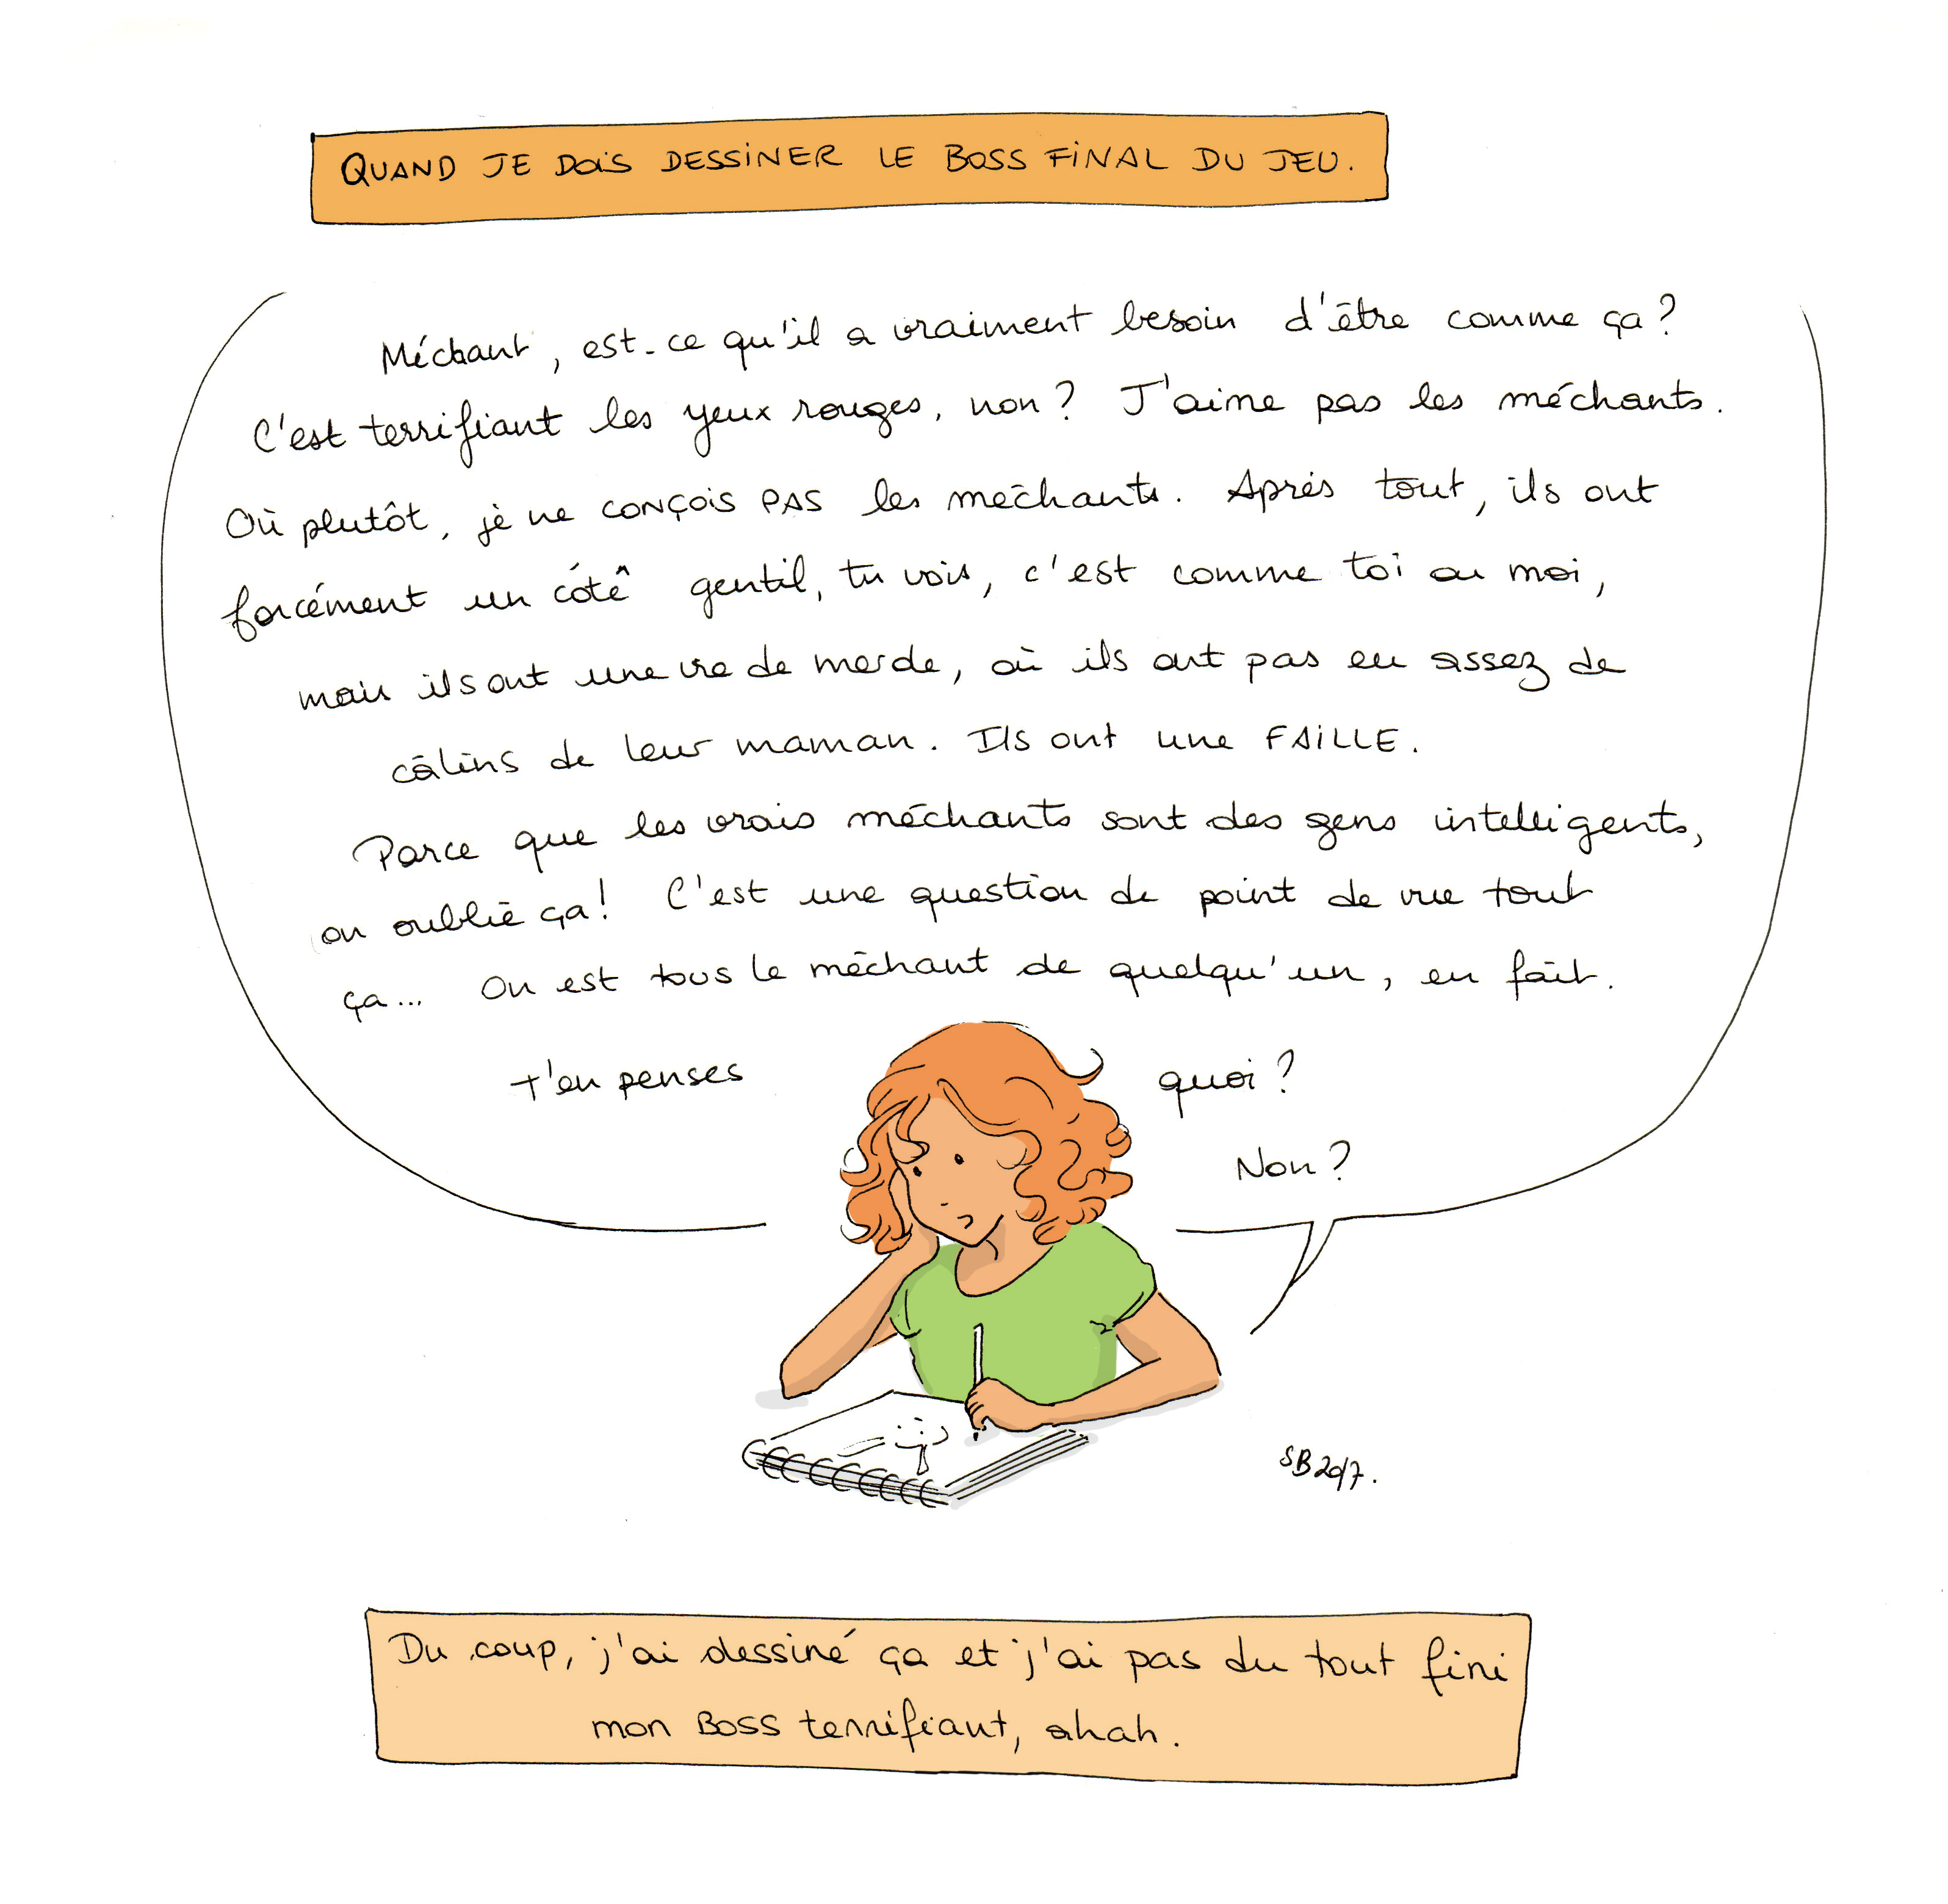 QUAND JE DOIS DESSINER LE BOSS FINAL DU JEU.
Méchant, est-ce qu'il a vraiment besoin d'être comme ça?
C'est terrifiant les yeux rouges, non? J'aime pas les méchants.
Où plutôt, je ne CONÇOIS PAS les méchants. Après tout, ils ont
forcément un côté gentil, tu vois, c'est comme toi ou moi,
mais ils ont une vie de merde, où ils ont pas eu assez de
câlins de leur maman. Ils ont une FAILLE.
Parce que les vrais méchants sont des gens intelligents,
on oublie ça! C'est une question de point de vue tout
ça... On est tous le méchant de quelqu'un, en fait.
T'en penses quoi?
Non?
SB 2017.
Du coup, j'ai dessiné ça et j'ai pas du tout fini
mon BOSS terrifiant, ahah.